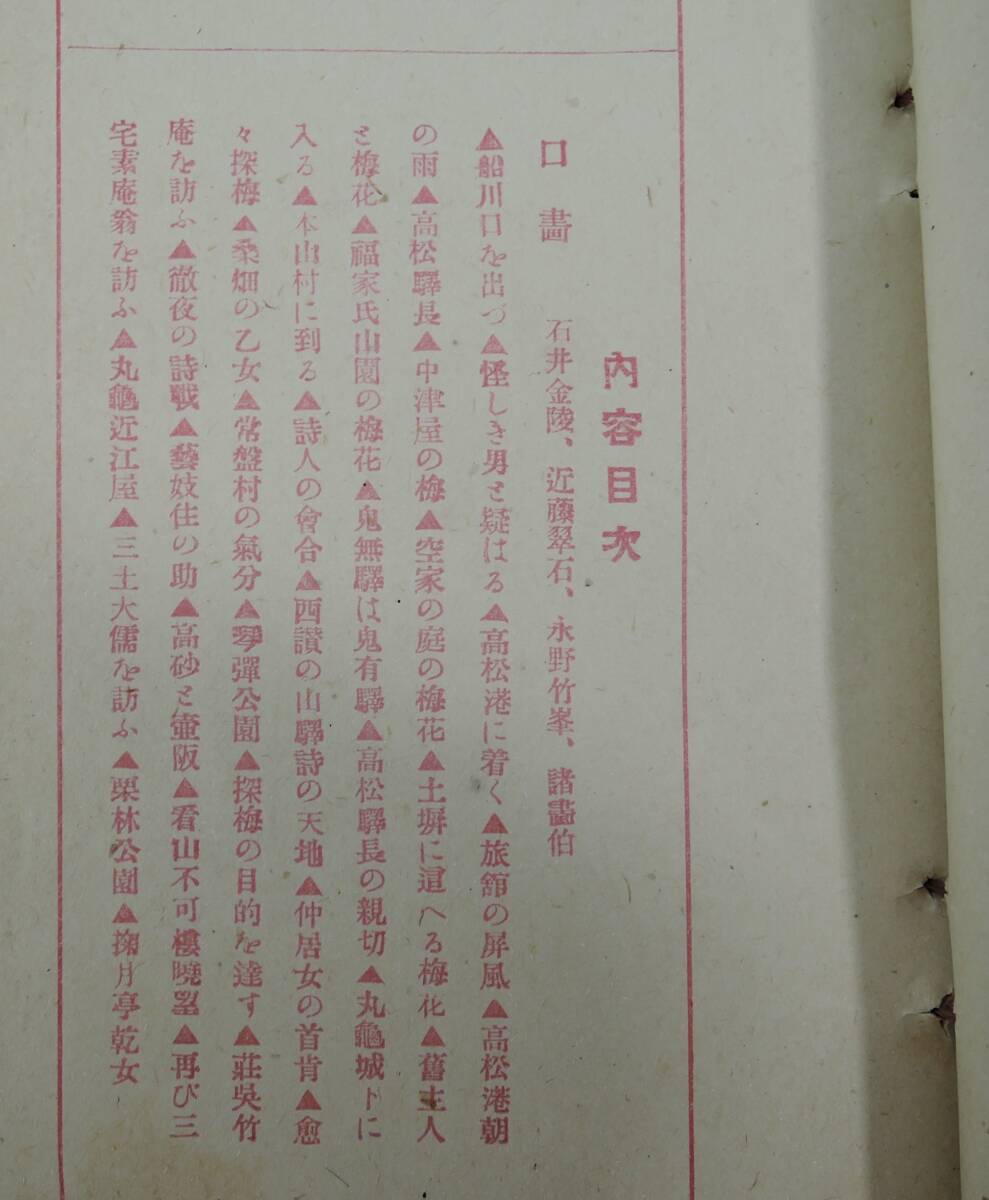 內容目次
口畵　石井金陵、近藤翠石、永野竹峯、諸畵伯
▲船川口を出づ▲怪しき男と疑はる▲高松港に着く▲旅舘の屏風▲高松港朝
の雨▲高松驛長▲中津屋の梅▲空家の庭の梅花▲土塀に這へる梅花▲舊主人
と梅花▲福家氏山園の梅花▲鬼無驛は鬼有驛▲高松驛長の親切▲丸龜城下に
入る▲本山村に到る▲詩人の會合▲西讃の山驛詩の天地▲仲居女の首肯▲愈
々探梅▲桑畑の乙女▲常盤村の氣分▲琴彈公園▲探梅の目的を達す▲莊吳竹
庵を訪ふ▲徹夜の詩戰▲藝妓住の助▲高砂と壷阪▲看山不可樓曉望▲再び三
宅素庵翁を訪ふ▲丸龜近江屋▲三土大儒を訪ふ▲栗林公園▲掬月亭乾女